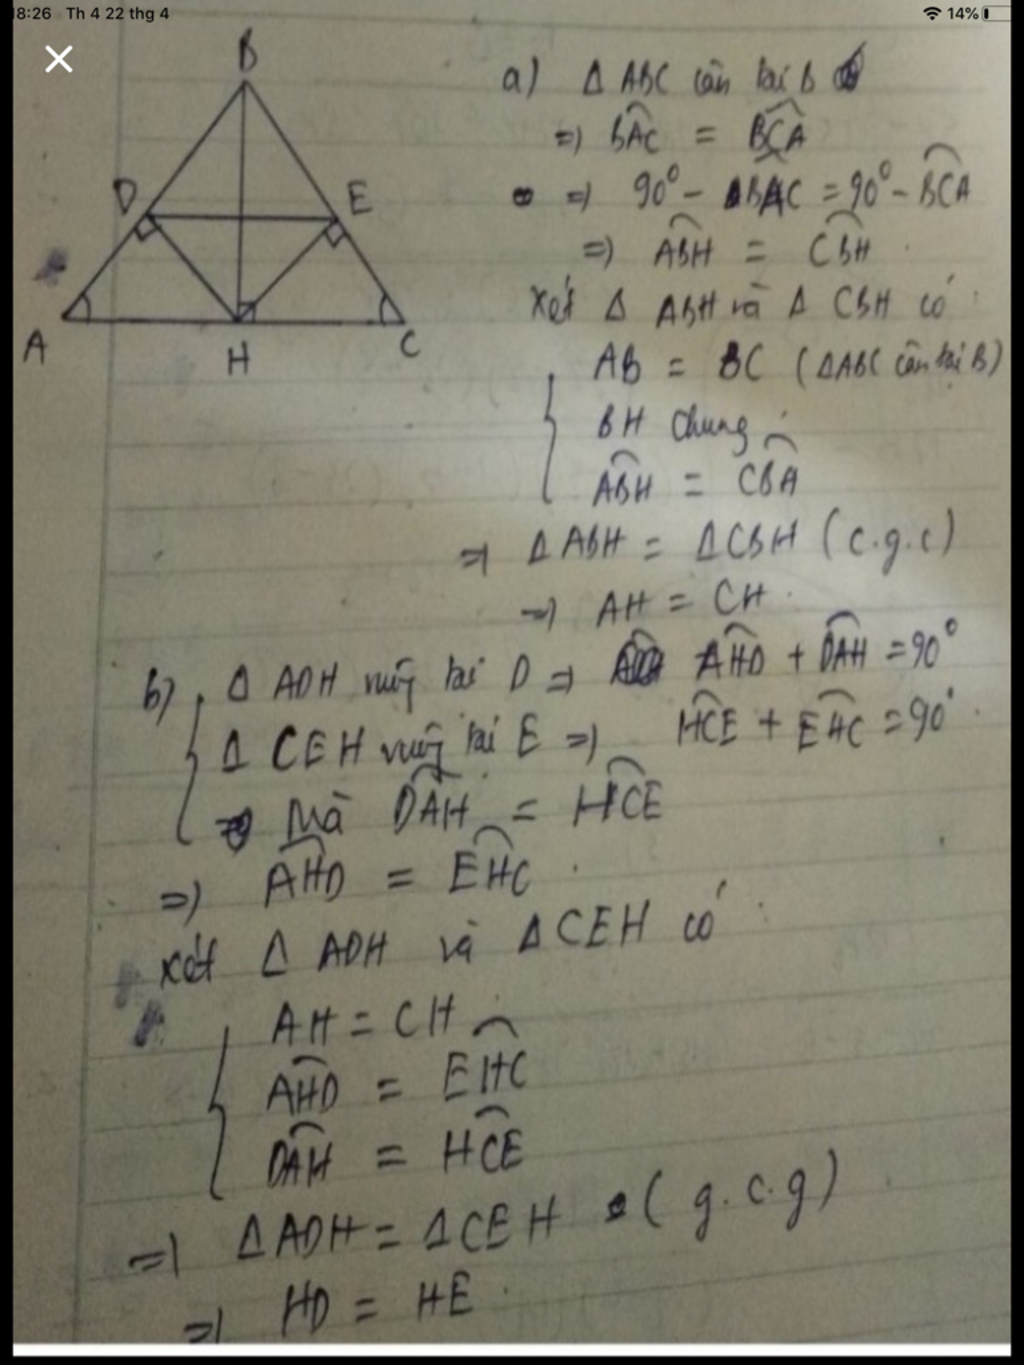 18:26 Th 4 22 thg 4
14%
B
D
E
A
H
C
a) Δ ABC cân tại B
=> BAC = BCA
=> 90° - BAC = 90° - BCA
=> ABH = CBH
Xét Δ ABH và Δ CBH có
AB = BC (ΔABC cân tại B)
BH chung
ABH = CBA
=> Δ ABH = Δ CBH (c.g.c)
=> AH = CH
b) Δ ADH vuông tại D => AHD + DAH = 90°
Δ CEH vuông tại E => HCE + EHC = 90°
Mà DAH = HCE
=> AHD = EHC
Xét Δ ADH và Δ CEH có
AH = CH
AHD = EHC
DAH = HCE
=> Δ ADH = Δ CEH (g.c.g)
=> HD = HE